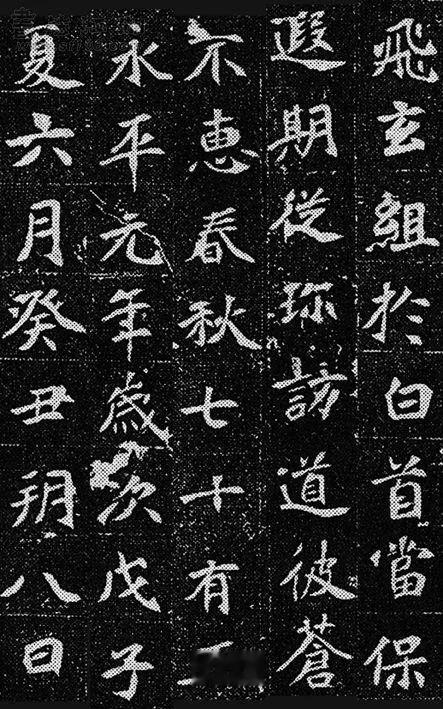 飛玄組於白首當保
遐期從珎訪道彼蒼
不惠春秋七十有
永平元年歲次戊子
夏六月癸丑朔八日